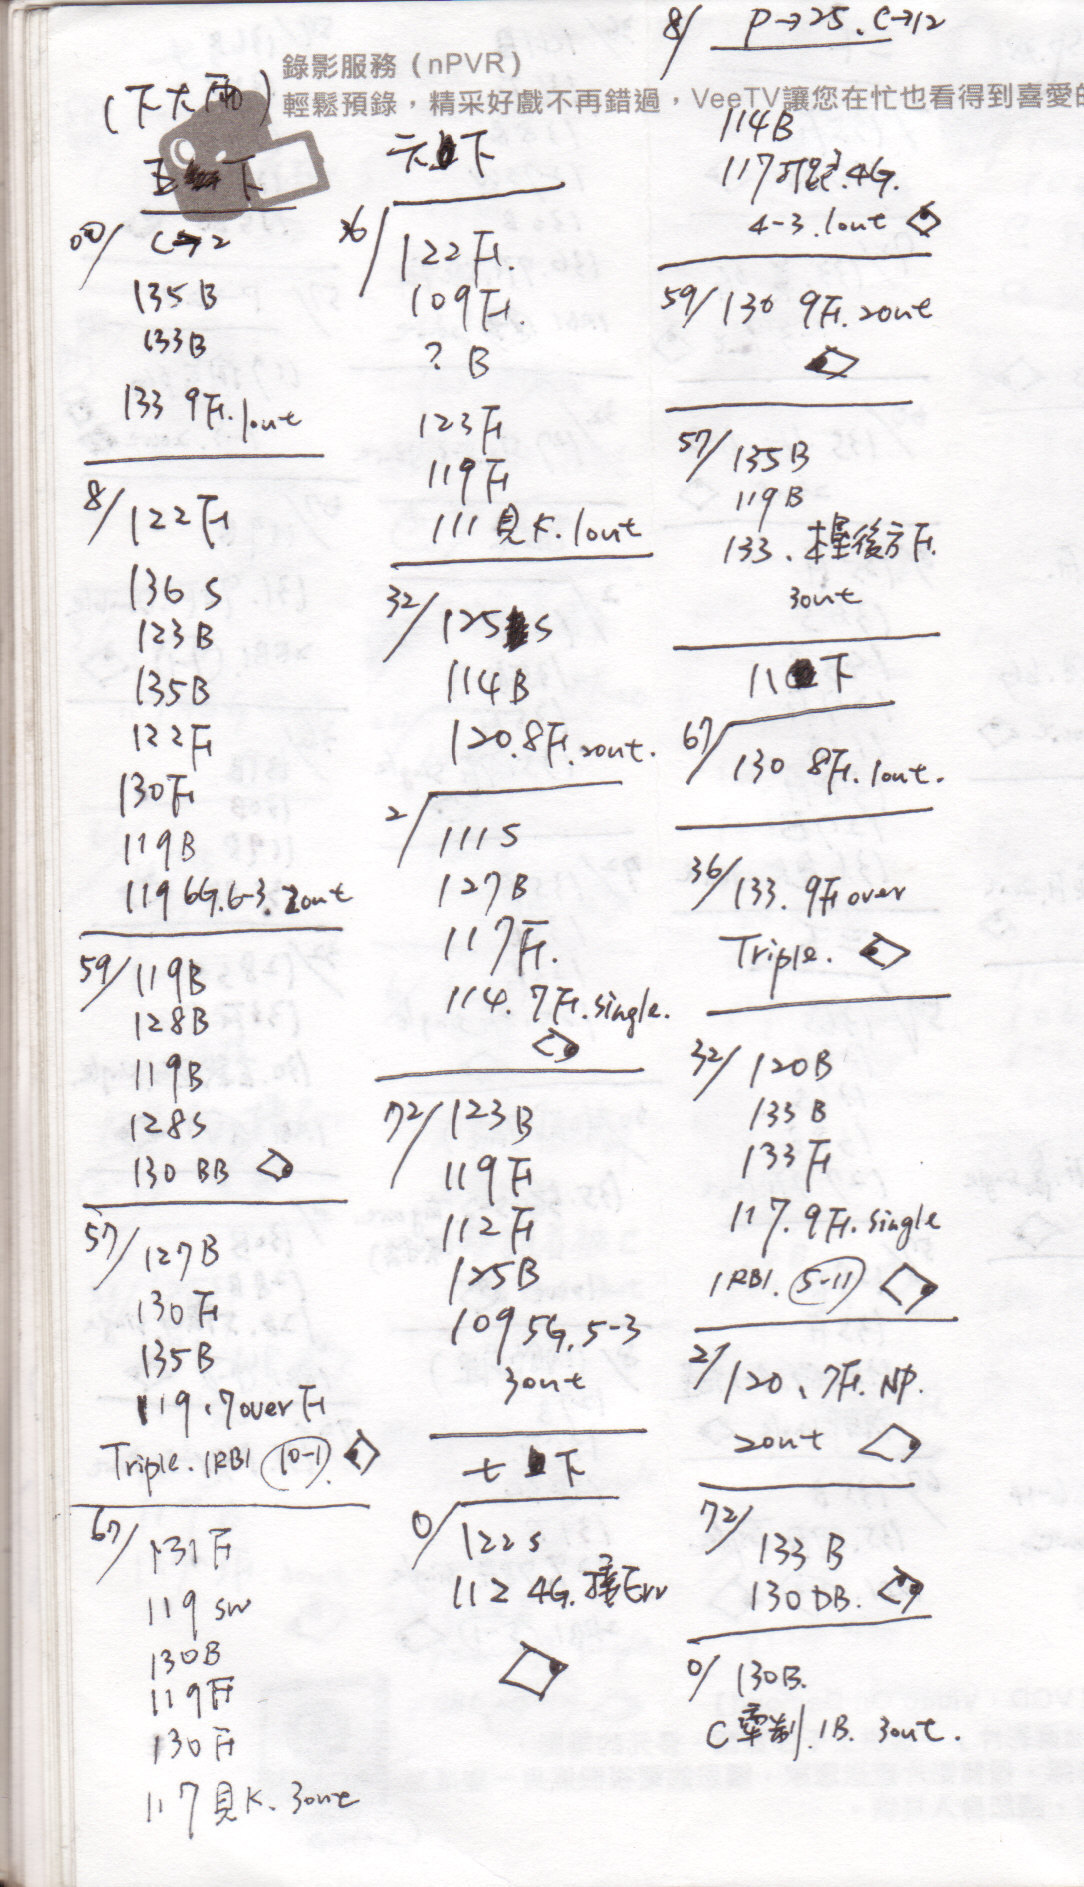 錄影服務（nPVR）
輕鬆預錄，精采好戲不再錯過，VeeTV讓您在忙也看得到喜愛的
(下大雨)
五下
00/ C→2
135B
133B
133 9F.1out
8/ 122F
136 S
123B
135B
122F
130F
119B
119 6G.6-3.2out
59/ 119B
128B
119B
128S
130 BB
57/ 127B
130F
135B
119.7overF
Triple.1RBI (10-1).
67/ 131F
119 SW
130B
119F
130F
117見K.3out
六下
36/ 122F.
109F.
? B
123F
119F
111見K.1out
32/ 125 S
114B
120.8F.2out.
2/ 111S
127B
117F.
114.7F.single.
72/ 123B
119F
112F
125B
109 5G.5-3
3out
七下
0/ 122S
112 4G.Err
8/ P→25.C→12
114B
117 4G.
4-3.1out
59/ 130 9F.2out
57/ 135B
119B
133.後方F.
3out
11下
67/ 130 8F.1out.
36/ 133.9F over
Triple.
32/ 120B
133B
133F
117.9F.single
1RBI.(5-11)
2/ 120.7F.NP.
2out
72/ 133B
130DB.
0/ 130B.
C牽制.1B.3out.